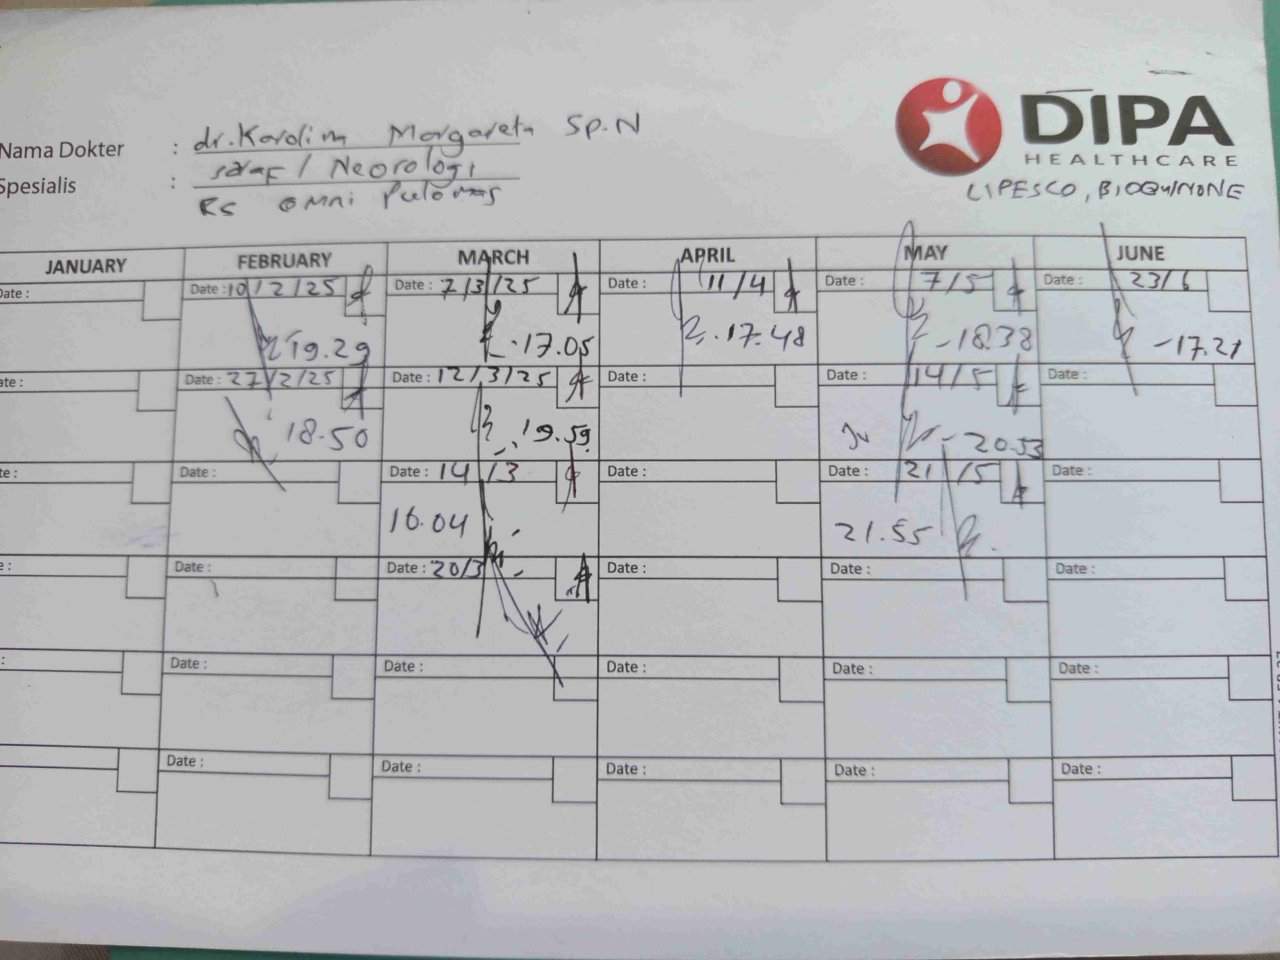 DIPA
HEALTHCARE
LIPESCO, BIOQUINONE
Nama Dokter : dr. Karolin Margareta Sp.N
Spesialis : saraf / Neorologi
RS omni Pulomas
JANUARY FEBRUARY MARCH APRIL MAY JUNE
Date : Date : 10/2/25 Date : 7/3/25 Date : 11/4 Date : 7/5 Date : 23/6
19.29 17.05 17.48 18.38 17.21
Date : Date : 27/2/25 Date : 12/3/25 Date : Date : 14/5 Date :
18.50 19.59 20.53
te : Date : Date : 14/3 Date : Date : 21/5 Date :
16.04 21.55
e : Date : Date : 20/3 Date : Date : Date :
: Date : Date : Date : Date : Date :
Date : Date : Date : Date : Date :